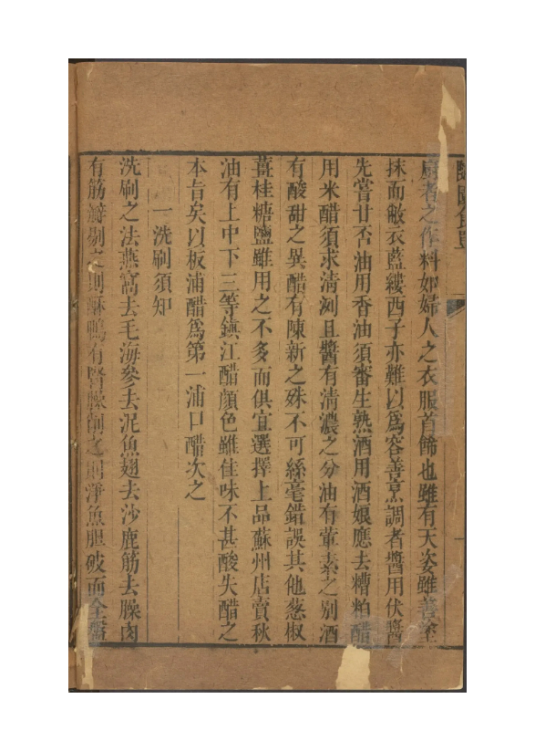 隨園食單
廚者之作料如婦人之衣服首飾也雖有天姿雖善塗
抹而敝衣藍縷西子亦難以為容善烹調者醬用伏醬
先嘗甘否油用香油須審生熟酒用酒娘應去糟粕醋
用米醋須求清冽且醬有清濃之分油有葷素之別酒
有酸甜之異醋有陳新之殊不可絲毫錯誤其他葱椒
薑桂糖鹽雖用之不多而俱宜選擇上品蘇州店賣秋
油有上中下三等鎮江醋顏色雖佳味不甚酸失醋之
本旨矣以板浦醋為第一浦口醋次之
一洗刷須知
洗刷之法燕窩去毛海參去泥魚翅去沙鹿筋去臊肉
有筋瓣剔之則酥鴨有腎臊削之則淨魚胆破而全盤